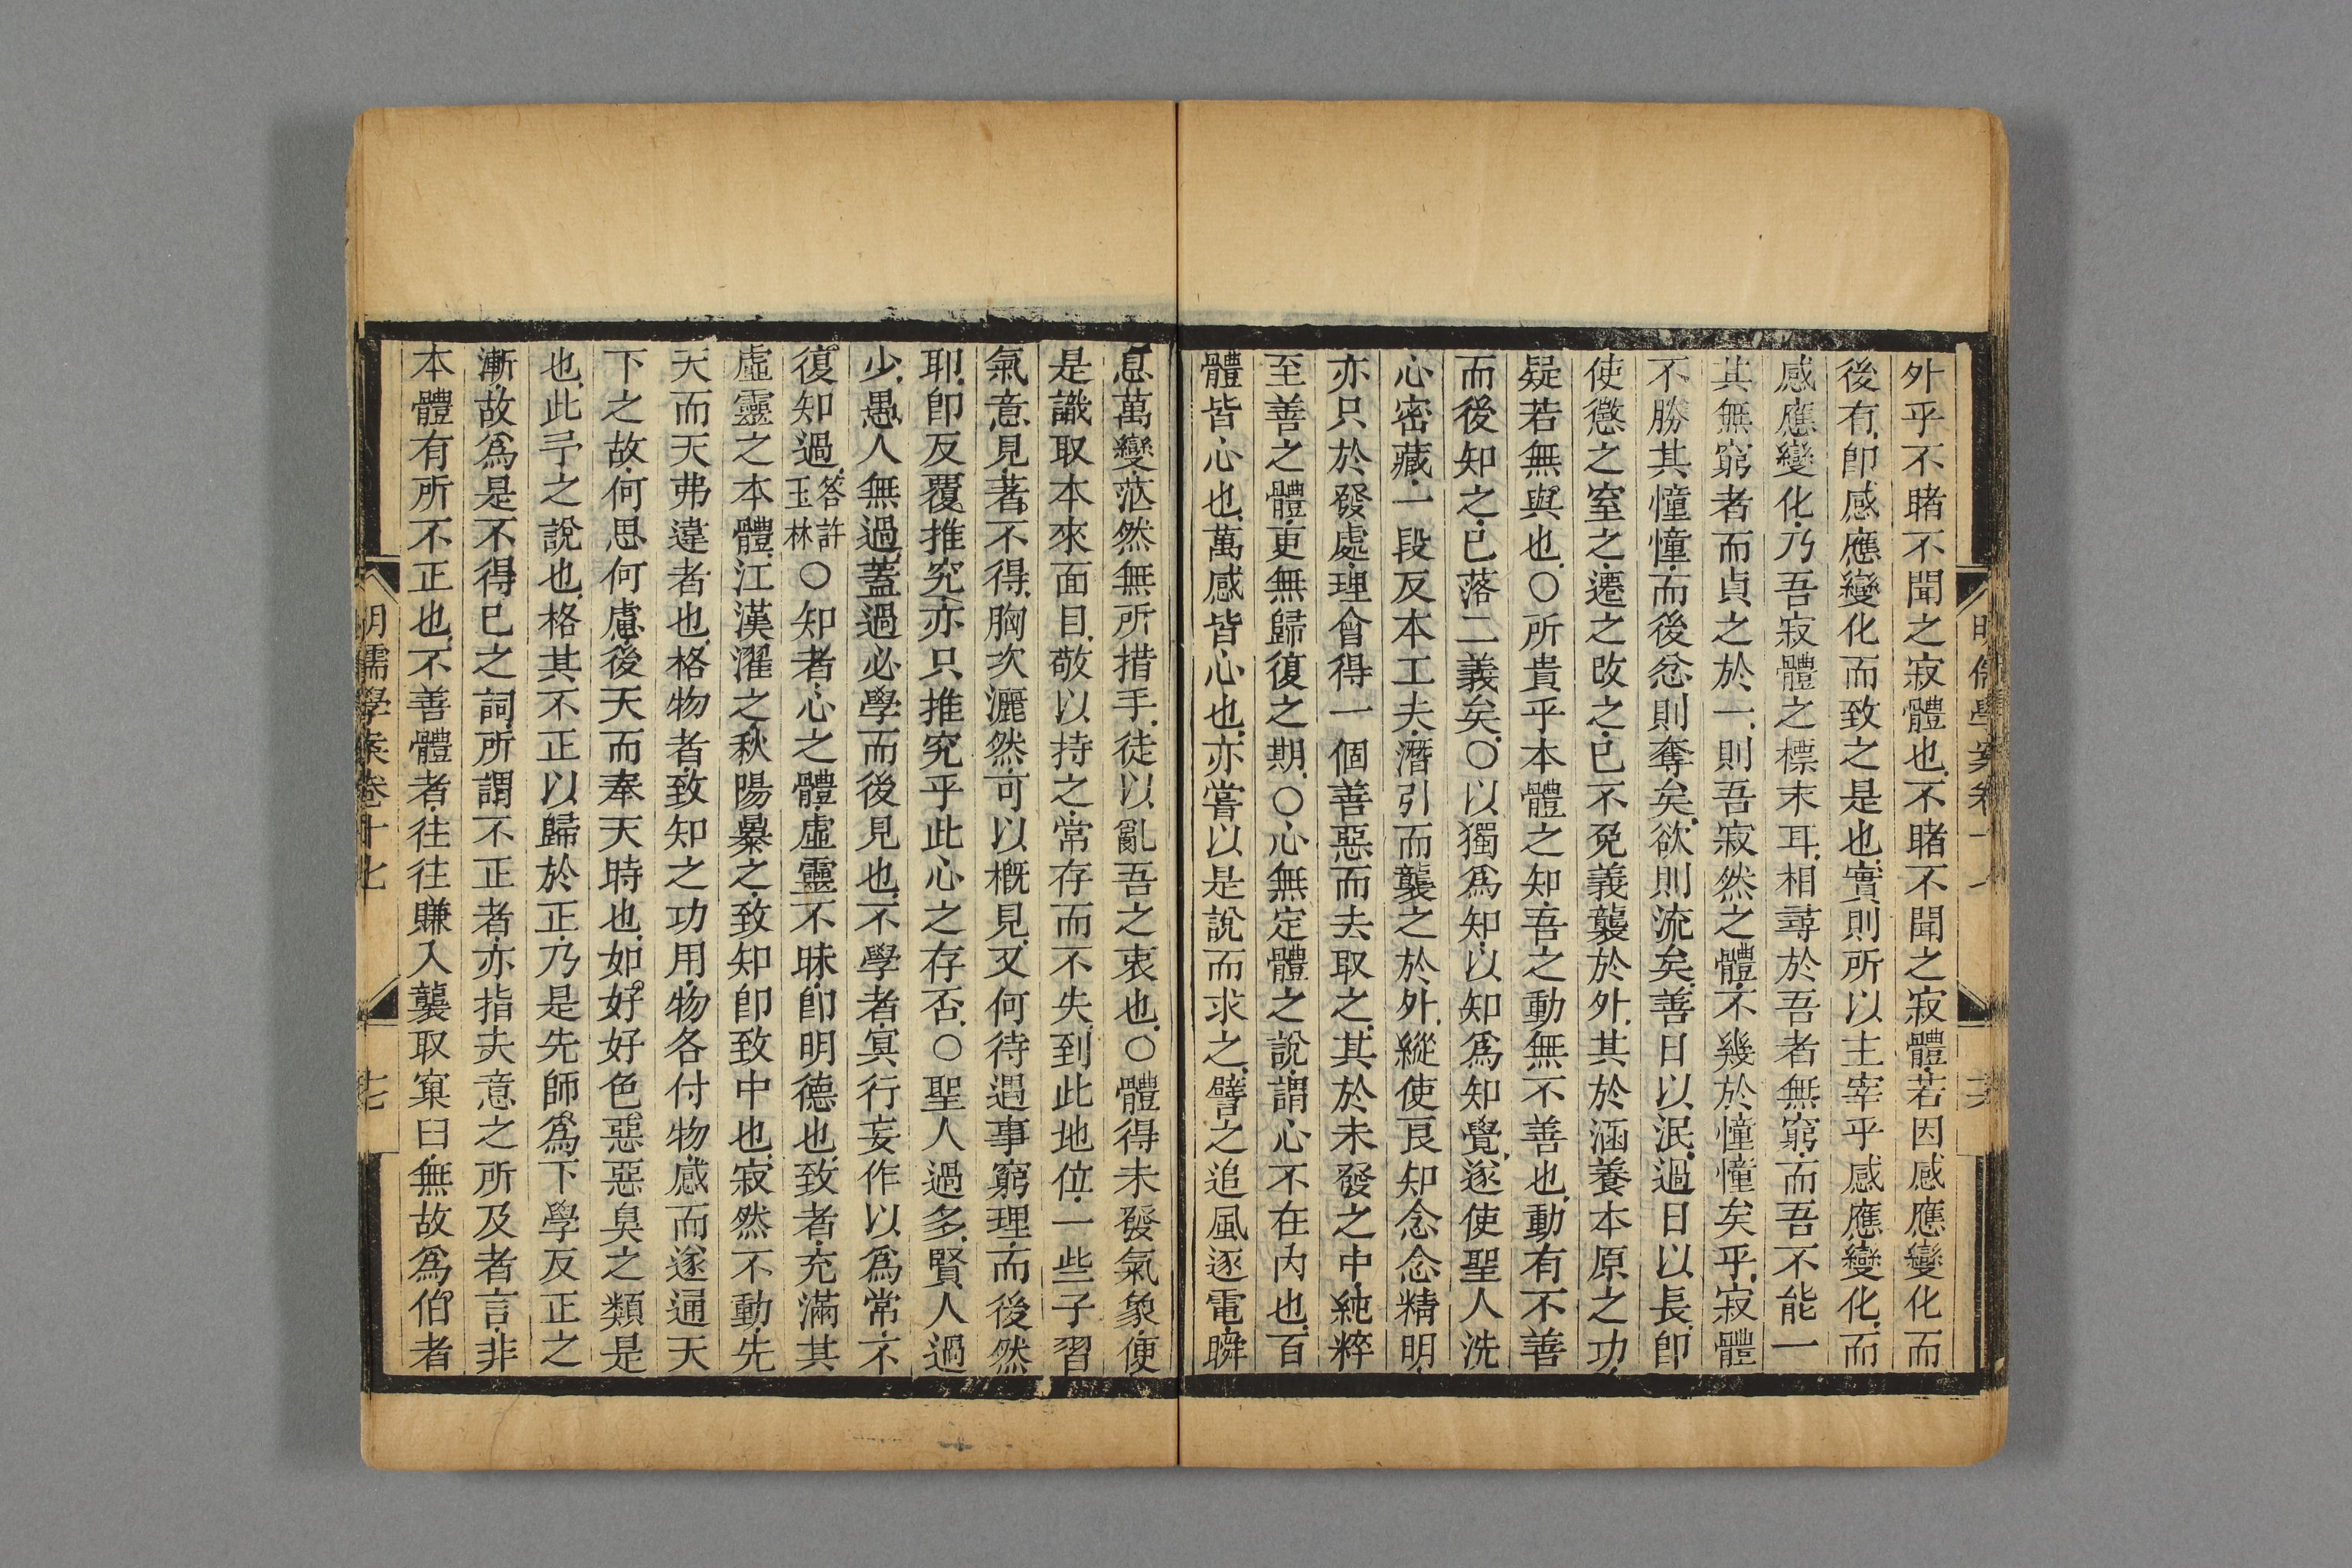 外乎不睹不聞之寂體也不睹不聞之寂體若因感應變化而
後有卽感應變化而致之是也實則所以主宰乎感應變化而
感應變化乃吾寂體之標末耳相尋於吾者無窮而吾不能一
其無窮者而貞之於一則吾寂然之體不幾於憧憧矣乎寂體
不勝其憧憧而後忿則奪矣欲則流矣善日以泯過日以長卽
使懲之窒之遷之改之已不免義襲於外其於涵養本原之功
疑若無與也○所貴乎本體之知吾之動無不善也動有不善
而後知之已落二義矣○以獨爲知以知爲知覺遂使聖人洗
心密藏一段反本工夫潛引而襲之於外縱使良知念念精明
亦只於發處理會得一個善惡而去取之其於未發之中純粹
至善之體更無歸復之期○心無定體之說謂心不在內也百
體皆心也萬感皆心也亦嘗以是說而求之譬之追風逐電瞬
息萬變茫然無所措手徒以亂吾之衷也○體得未發氣象便
是識取本來面目敬以持之常存而不失到此地位一些子習
氣意見著不得胸次灑然可以概見又何待遇事窮理而後然
耶卽反覆推究亦只推究乎此心之存否○聖人過多賢人過
少愚人無過蓋過必學而後見也不學者冥行妄作以爲常不
復知過答許玉林○知者心之體虛靈不昧卽明德也致者充滿其
虛靈之本體江漢濯之秋陽暴之致知卽致中也寂然不動先
天而天弗違者也格物者致知之功用物各付物感而遂通天
下之故何思何慮後天而奉天時也如好好色惡惡臭之類是
也此予之說也格其不正以歸於正乃是先師爲下學反正之
漸故爲是不得已之詞所謂不正者亦指夫意之所及者言非
本體有所不正也不善體者往往賺入襲取窠臼無故爲伯者
明儒學案卷十七
十七